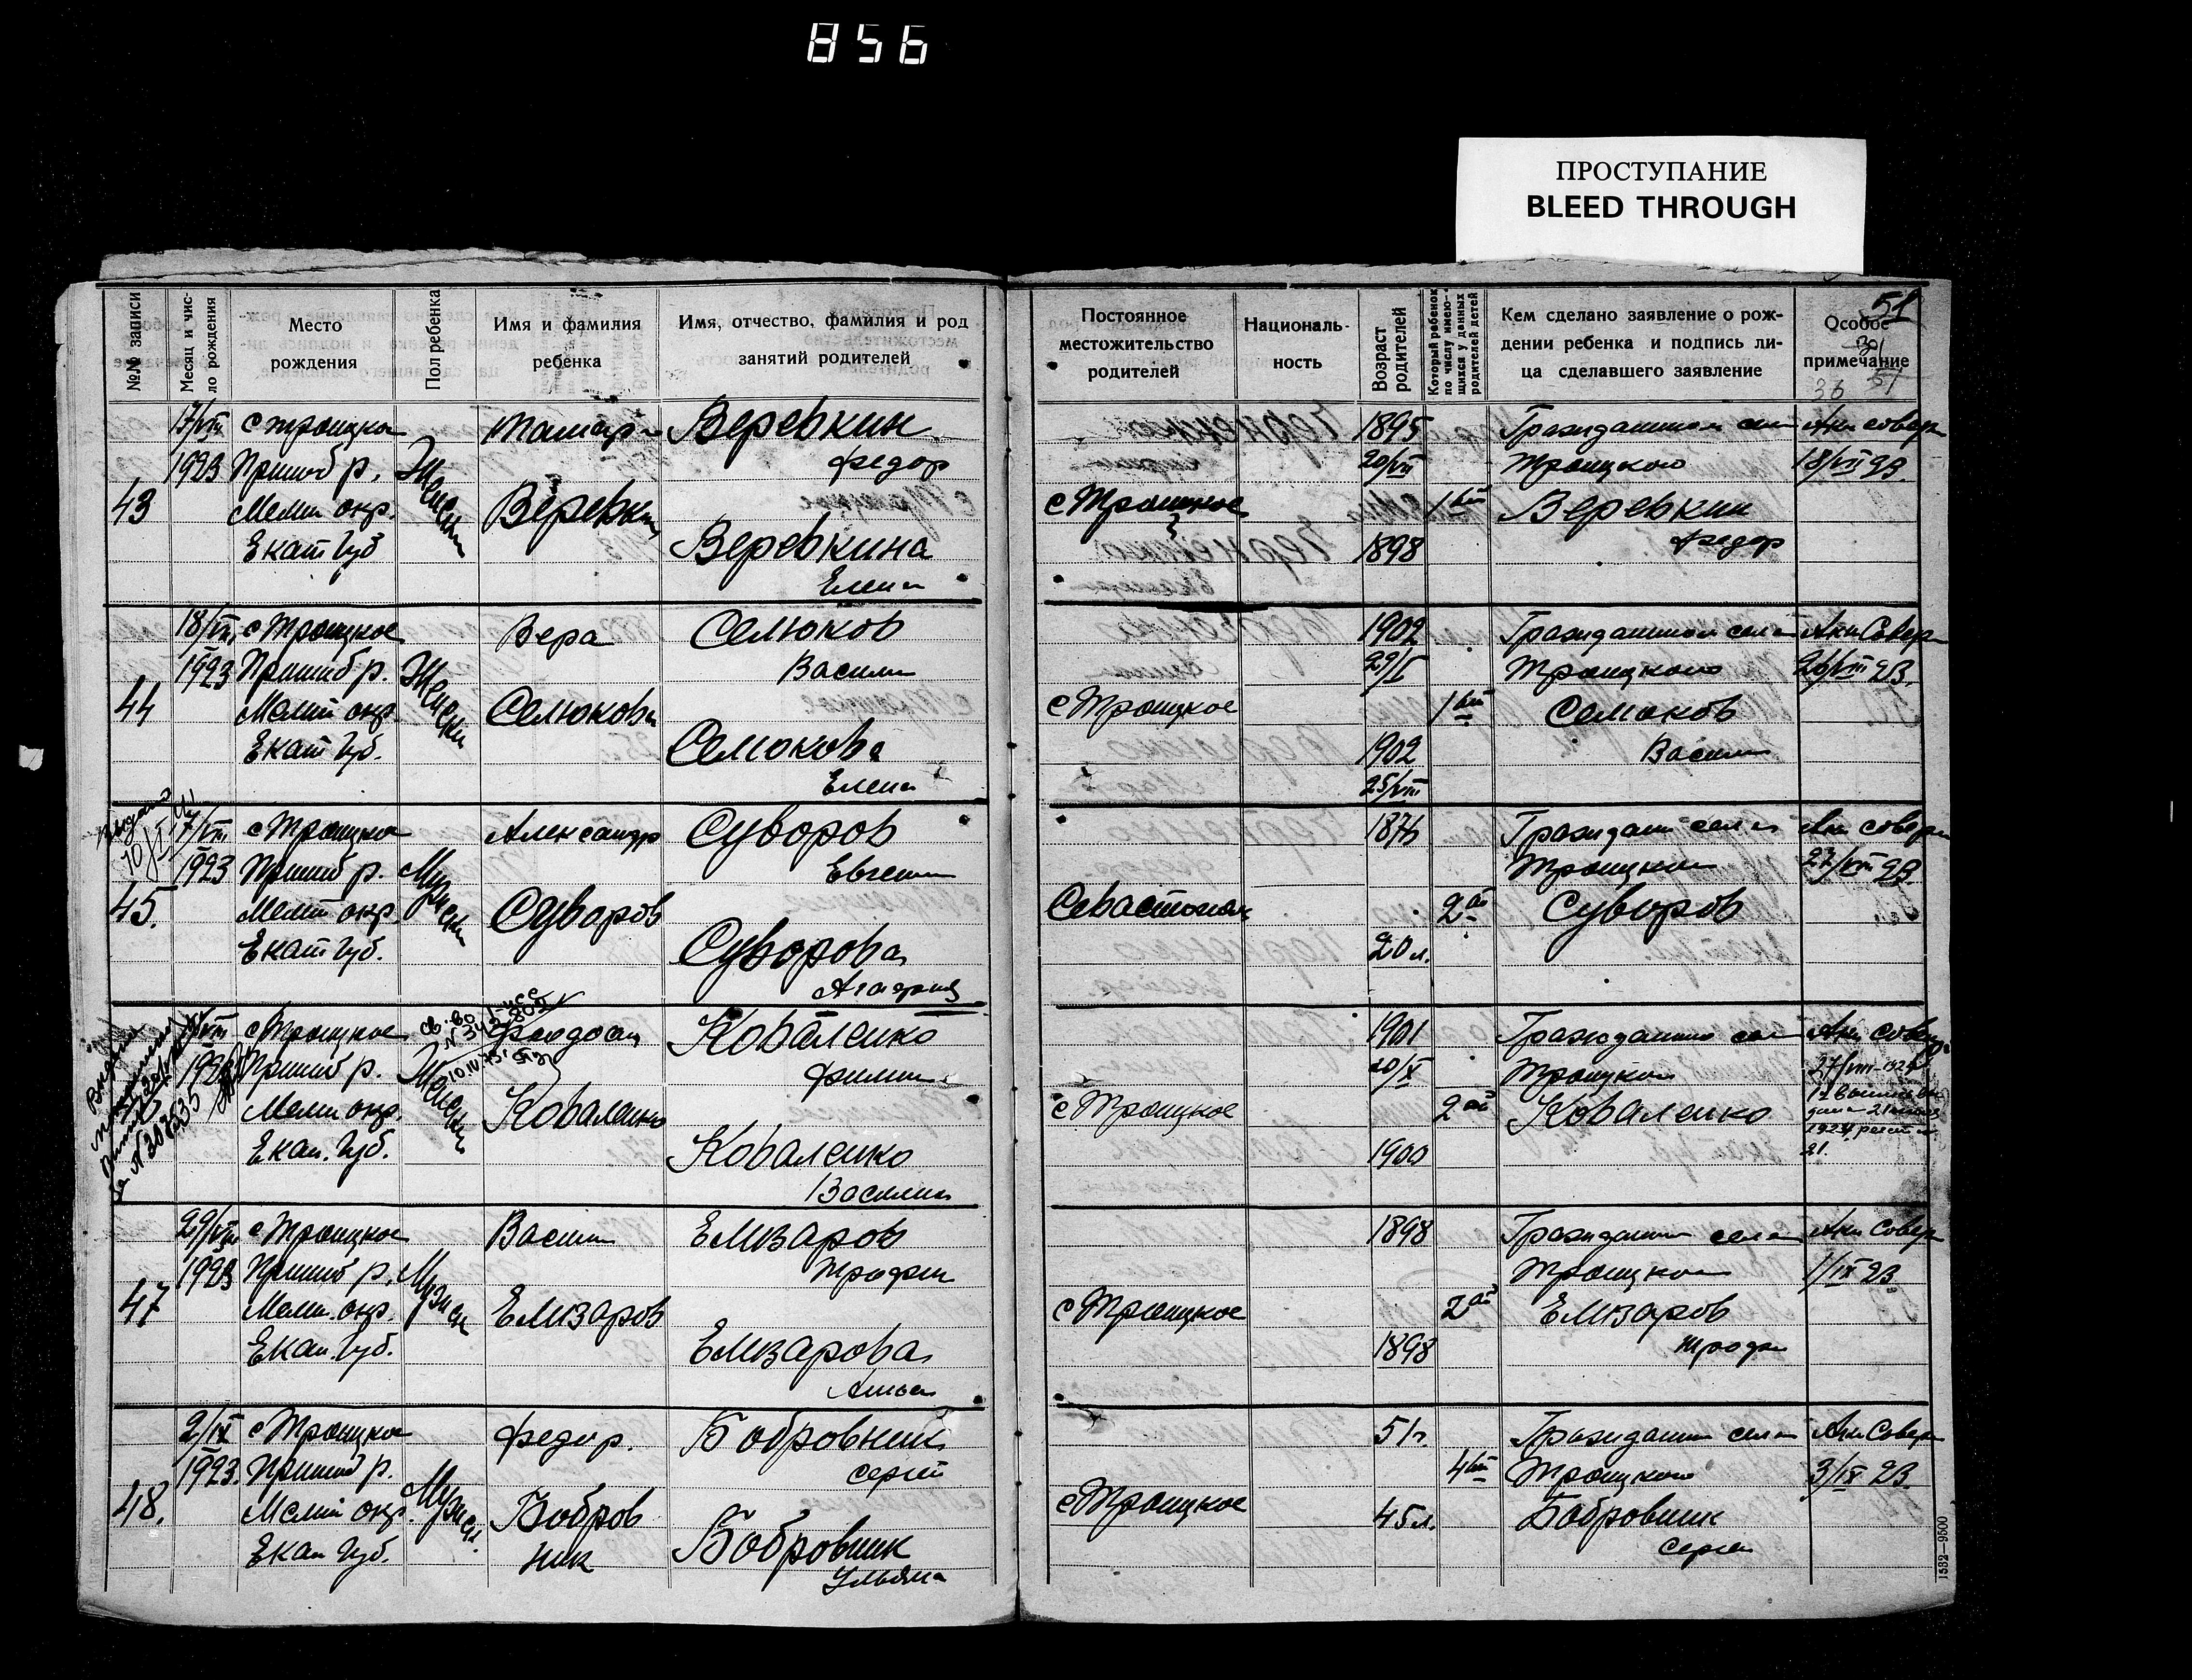 856
ПРОСТУПАНИЕ
BLEED THROUGH
51
№№ записи
Месяц и чис-
ло рождения
Место
рождения
Пол ребенка
Имя и фамилия
ребенка
Имя, отчество, фамилия и род
занятий родителей
Постоянное
местожительство
родителей
Националь-
ность
Возраст
родителей
Который ребенок
по числу имею-
щихся у данных
родителей детей
Кем сделано заявление о рож-
дении ребенка и подпись ли-
ца сделавшего заявление
Особое
примечание
43
17/VIII
1923
с Троицкое
Пришиб р.
Мелит окр.
Екат Губ
Женски
Тамара
Веревкин
Веревкин
Федор
Веревкина
Елена
с Троицкое
1895
20/VII
1898
1ый
Гражданином села
Троицкого
Веревкин
Федор
Акт соверш
18/VIII 23.
44
18/VIII
1923
с Троицкое
Пришиб р.
Мелит окр.
Екат Губ.
Женски
Вера
Селюкова
Селюков
Василий
Селюкова
Елена
с Троицкое
1902
29/I
1902
25/VIII
1ый
Гражданином села
Троицкого
Селюков
Васили
Акт Соверш
26/VIII 23.
45.
17/VIII
1923
с Троицкое
Пришиб р.
Мелит окр.
Екат Губ.
Мужски
Александр
Суворов
Суворов
Евгений
Суворова
Севастополь
1876
20 л.
2ой
Граждани села
Троицкого
Суворов
Акт соверш
27/VIII 23.
с Троицкое
Пришиб р.
Мелит окр.
Екат. Губ.
Женски
св-во
10.IV.73г.
Феодосия
Коваленко
Коваленко
Филип
Коваленко
Василиса
с Троицкое
1901
20/X
1900
2ой
Гражданином села
Троицкого
Коваленко
Акт соверш
27/VIII
21.
47
29/VIII
1923
с Троицкое
Пришиб р.
Мелит. окр.
Екат. Губ.
Мужск
Васили
Елизаров
Елизаров
Трофим
Елизарова
Анна
с Троицкое
1898
1898
2ой
Гражданин села
Троицкого
Елизаров
Трофим
Акт Соверш
1/IX 23
48.
2/IX
1923.
с Троицкое
Пришиб р.
Мелит окр.
Екат Губ.
Мужск.
Федор.
Бобров
ник
Бобровник
Сергей
Бобровник
Ульяна
с Троицкое
51 г.
45 л.
4ый
Гражданин села
Троицкого
Бобровник
Сергей
Акт Соверш
3/IX 23.
1532—9500